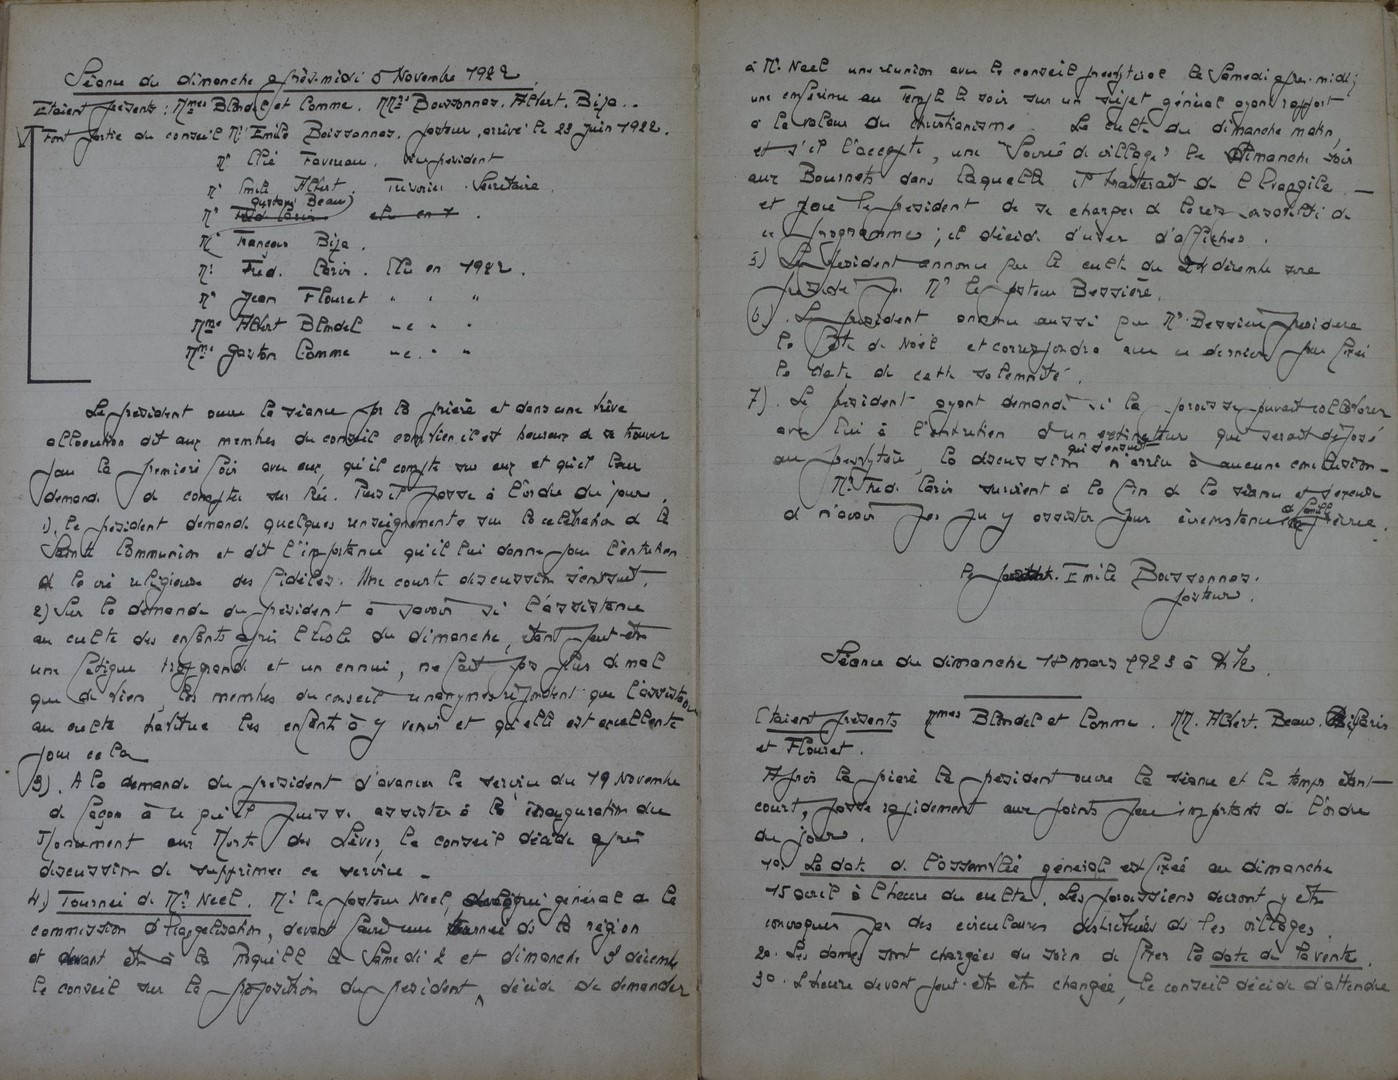 Séance du dimanche après-midi 5 Novembre 1922.
Etaient présents : Mmes Blondel et Comme. MM. Boissonnas. Albert. Bija..
Font partie du conseil Mr Emile Boissonnas. pasteur, arrivé le 23 juin 1922.
Mr Elié Favereau, vice président
Mr Emile Albert. Trésorier. Secrétaire
Gustave Beau
Mr Fréd Paris élu en .
Mr François Bija.
Mr Fréd. Paris. Elu en 1922.
Mr Jean Flouret " " "
Mme Albert Blondel " " "
Mme Gaston Comme " " "
Le président ouvre la séance par la prière et dans une brève
allocution dit aux membres du conseil combien il est heureux de se trouver
pour la première fois avec eux, qu'il compte sur eux et qu'il leur
demande de compter sur lui. Puis il passe à l'ordre du jour.
1). Le président demande quelques renseignements sur la célébration de la
Sainte Communion et dit l'importance qu'il lui donne pour l'entretien
de la vie religieuse des fidèles. Une courte discussion s'ensuit.
2) Sur la demande du président à savoir si l'assistance
au culte des enfants après l'école du dimanche, étant peut-être
une fatigue trop grande et un ennui, ne fait pas plus de mal
que de bien, les membres du conseil unanymes répondent que l'assistance
au culte habitue les enfants à y venir et qu'elle est excellente
pour cela
3). A la demande du président d'avancer le service du 19 Novembre
de façon à ce qu'il puisse assister à la inauguration du
Monument aux Morts des Lèves, le conseil décide après
discussion de supprimer ce service -
4) Tournée de Mr. Neel. Mr le pasteur Neel, général de la
commission d'Evangélisation, devant faire une tournée ds la région
et devant être à la Roquille le Samedi 2 et dimanche 3 décembre
le conseil sur la proposition du président, décide de demander
à Mr. Neel une réunion avec le conseil presbytéral le Samedi après-midi;
une conférence au Temple le soir sur un sujet général ayant rapport
à la valeur du christianisme. Le culte du dimanche matin,
et s'il l'accepte, une "Soirée de village" le dimanche soir
aux Bournets dans laquelle il traiterait de l'Evangile. -
et prie le président de se charger de la
ce programme ; il décide d'user d'affiches.
5) Le président annonce que le culte du 24 décembre sera
présidé par Mr le pasteur Bessière.
6). Le président annonce aussi que Mr Bessière présidera
la fête de Noël et correspondra avec ce dernier pour fixer
la date de cette solennité.
7). Le président ayant demandé si la paroisse pouvait collaborer
avec lui à l'entretien d'un extincteur qui serait déposé
au presbytère, la discussion qui s'ensuit n'arrive à aucune conclusion -
Mr. Fred. Paris survient à la fin de la séance et s'excuse
de n'avoir pas pu y assister pour circonstance de famille
Le président. Emile Boissonnas.
pasteur.
Séance du dimanche 18 mars 1923 à 2h ½.
Etaient présents Mmes Blondel et Comme. MM. Albert. Beau. Bija. Paris
et Flouret.
Après la prière le président ouvre la séance et le temps étant
court, passe rapidement aux points peu importants de l'ordre
du jour.
1o. La date de l'assemblée générale est fixée au dimanche
15 avril à l'heure du culte. Les paroissiens devront y être
convoqués par des circulaires distribuées ds les villages.
2o. Les dames sont chargées du soin de fixer la date de la vente.
3o. L'heure devant peut-être être changée, le conseil décide d'attendre